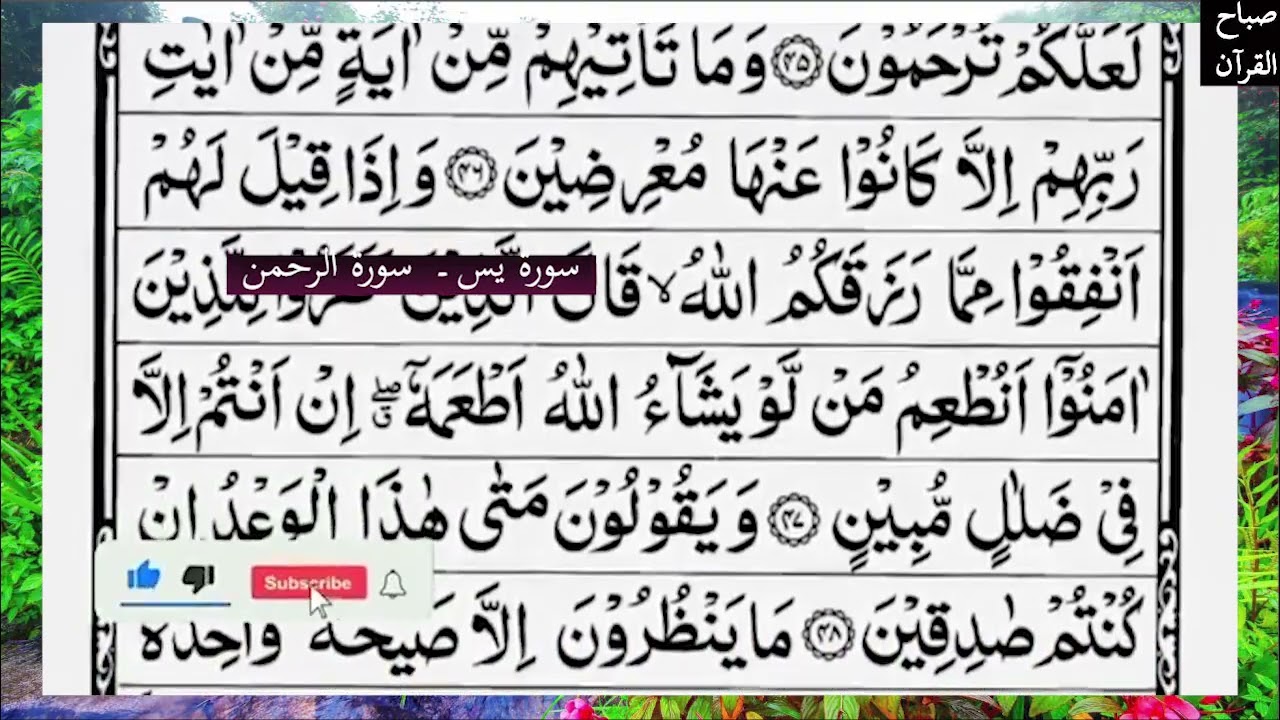 صباح
القرآن
لَعَلَّكُمْ تُرْحَمُوْنَ ۴۵ وَمَا تَاْتِيْهِمْ مِّنْ اٰيَةٍ مِّنْ اٰيٰتِ
رَبِّهِمْ اِلَّا كَانُوْا عَنْهَا مُعْرِضِيْنَ ۴۶ وَاِذَا قِيْلَ لَهُمْ
اَنْفِقُوْا مِمَّا رَزَقَكُمُ اللّٰهُ ۙ قَالَ الَّذِيْنَ كَفَرُوْا لِلَّذِيْنَ
سورة يٰس - سورة الرحمن
اٰمَنُوْٓا اَنُطْعِمُ مَنْ لَّوْ يَشَآءُ اللّٰهُ اَطْعَمَهٗٓ ۖق اِنْ اَنْتُمْ اِلَّا
فِىْ ضَلٰلٍ مُّبِيْنٍ ۴۷ وَيَقُوْلُوْنَ مَتٰى هٰذَا الْوَعْدُ اِنْ
Subscribe
كُنْتُمْ صٰدِقِيْنَ ۴۸ مَا يَنْظُرُوْنَ اِلَّا صَيْحَةً وَّاحِدَةً